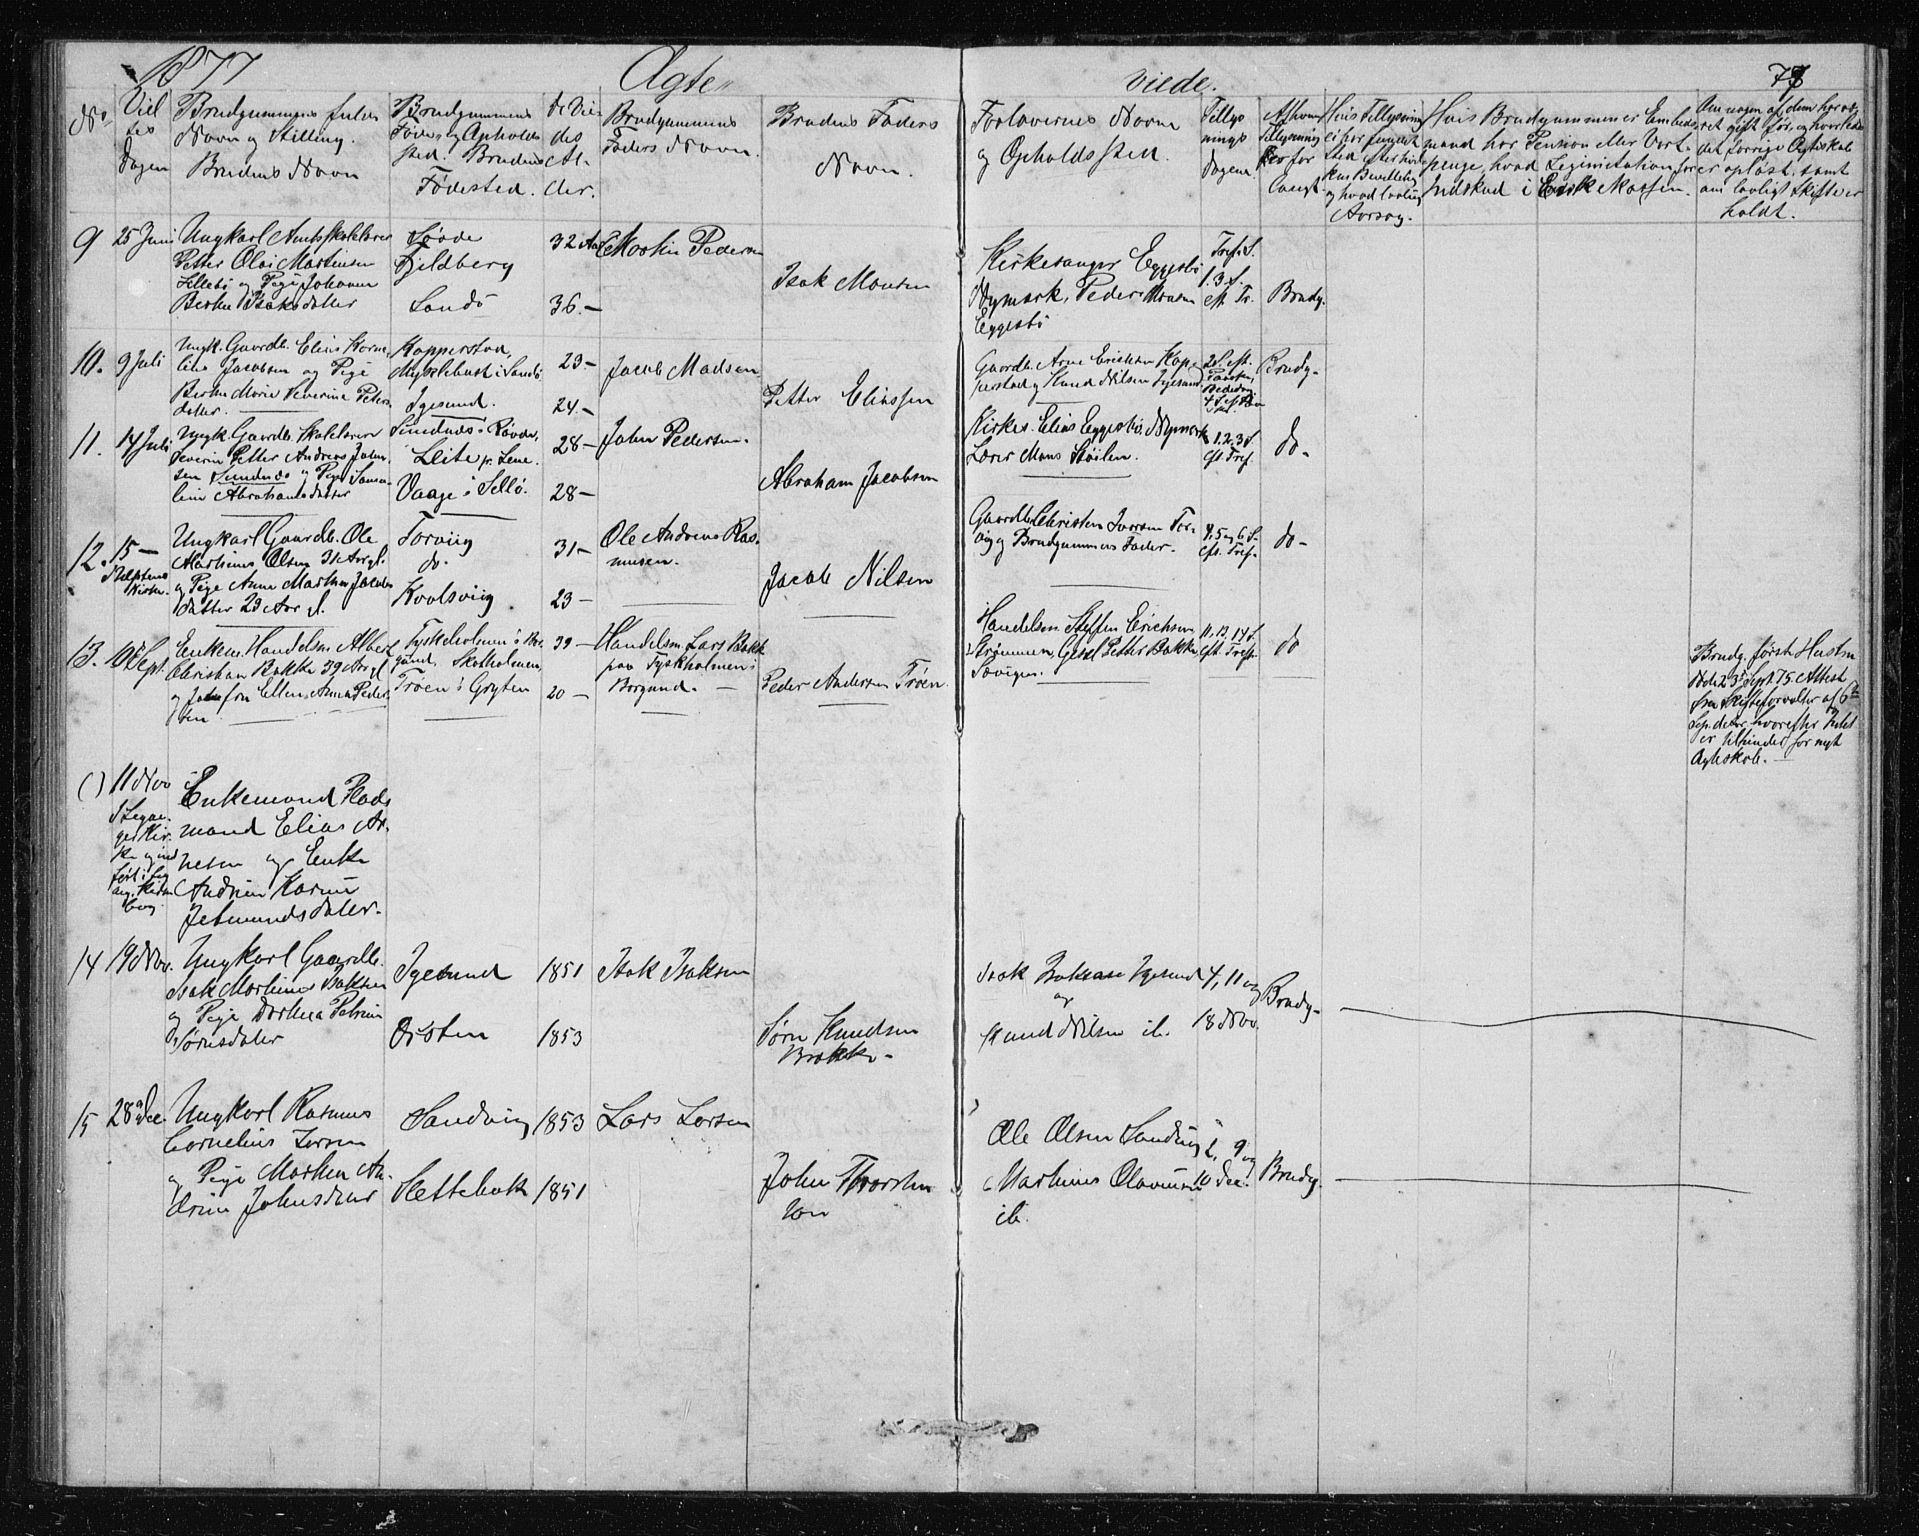 1877
Ægte-
viede.
77
No
Viel
ses
dagen
Brudgummens fulde
Navn og Stilling.
Brudens Navn
Brudgummens
Føde- og Opholds
sted. Brudens
Fødested.
de Vie-
des
Al-
der.
Brudgummens
Faders Navn.
Brudens Faders
Navn.
Forlovernes Navne
og Opholdssted.
Tillys
nings
dagene
Hvis Tillysning
ei har fundet
Sted efter hvil
ken Bevilling
og hvad lovlig
Aarsag.
Hvis Brudgummen er Embeds
mand har Pension eller Vart-
penge, hvad Legimitation for
Indskud i Enkekassen.
Om nogen af dem har væ
ret gift før, og hvorledes
det forrige Ægteskab
er opløst, samt
om lovligt Skifte er
holdt.
9
25 Juni
Ungkarl Amtsskolelærer
Petter Olai Martinsen
Lillebø og Pige Johanne
Berthe Isaksdatter
Søvde
Fjeldberg
Sandø
32 Aar
36.-
Martin Pedersen
Isak Monsen
Kirkesanger Eggesbø
Nymark, Peder Monsen
Eggesbø
Tref. S.
1. 3. S.
eft. Tr.
Brudg.
10.
9 Juli
Ungk. Gaardb. Elias Korne-
lius Jacobsen og Pige
Berthe Marie Severine Peters-
datter.
Kopperstad,
Myklebust i Sandø
Igesund.
23-
24.-
Jacob Madsen
Petter Eliassen
Gaardb. Arne Ericksen Kop-
perstad og Knud Nilsen Igesund
2 S. eft.
Paaske,
Bededag
Brudg-
11.
14 Juli
Ungk. Gaardb. Skolelærer
Severin Petter Andreas John-
sen Sundnæs og Pige Samu-
line Abrahamsdatter
Sundnæs i Røvde,
Vaage i Sellø.
28-
28-
John Pedersen.
Abraham Jacobsen
Kirkes. Elias Eggesbø Nymark
Lærer Mons Støilen.
1. 2. 3 S
eft. Tref.
do-
12.
15-
Kirke.
Ungkarl Gaardb. Ole
Marthinus Olsen 31 Aar gl.
og Pige Anne Marthea Jacobs
datter 23 Aar gl.
Torvig
do.
Kvalsviig
31-
23-
Ole Andreas Ras-
musen.
Jacob Nilsen
Gaardb. Christen Iversen Tor-
vig og Brudgummens Fader.
4, 5 og 6 S.
eft. Tref.
do-
13.
10 Sept.
Enkem. Handelsm. Albert
Christian Bakke 39 Aar gl
og Jomfru Ellen Anna Peder
sen
Tyskholmen i Bor
gund, Skotholmen,
Trøen i Gryten
39-
20-
Handelsm. Lars Bakke
paa Tyskholmen i
Borgund.-
Peder Andersen Trøen.
Handelsm. Steffen Erichsen
Strømmen, Petter Bakke
Søvigen.
11. 13. 14 S.
eft. Tref.
do
Brudg. første Hustru
døde 23de Sept. 75 Attest
fra Skifteforvalter af 6te
Sep. dette, hvorefter Intet
er til hinder for nyt
Ægteskab.-
( )
11 Nov
ger Kir-
ke og ind
ført i
Bog.
Enkemand Plads
mand Elias Ar-
nesen og Enke
Andrine Karine
Jetmundsdatter.
14
19 Nov.
Ungkarl Gaardb.
Isak Marthinus Isaksen
og Pige Dorthea Petrine
Sørensdatter
Igesund
Ørsten
1851
1853
Isak Isaksen
Søren Knudsen
Brakke-
Isak Isaksen Igesund
og
Knud Nilsen ib.
4, 11 og
18 Nov.
Brudg-
15
28de Dec.
Ungkarl Rasmus
Cornelius Larsen
og Pige Marthe An-
drine Johnsdatter
Sandvig
Slettebak
1853
1851
Lars Larsen
John Thorsten
sen
Ole Olsen Sandvig
Marthinus Olavesen
ib.
2, 9 og
10 Dec.
Brudg.